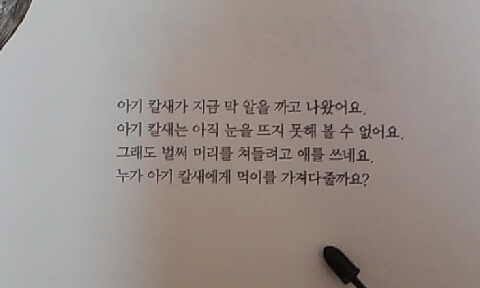 아기 칼새가 지금 막 알을 까고 나왔어요.
아기 칼새는 아직 눈을 뜨지 못해 볼 수 없어요.
그래도 벌써 머리를 쳐들려고 애를 쓰네요.
누가 아기 칼새에게 먹이를 가져다줄까요?